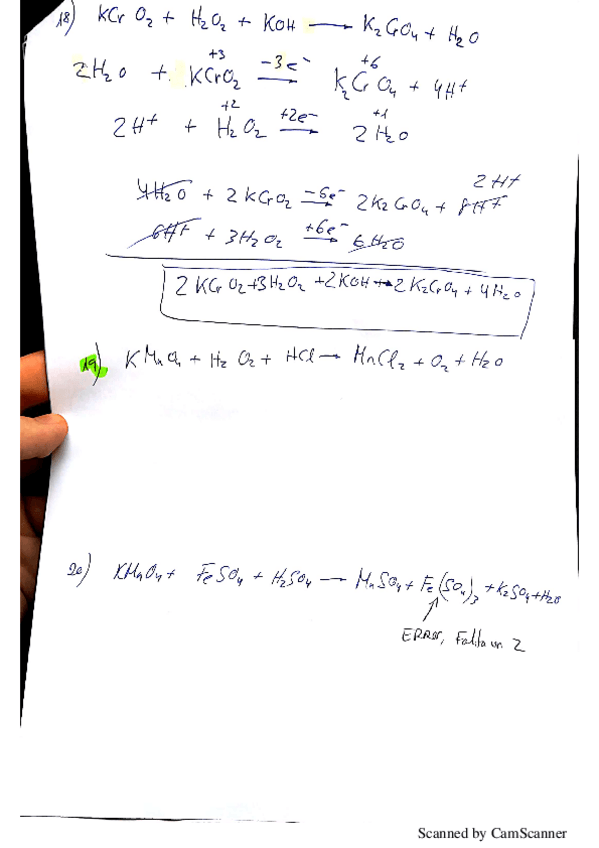 18) KCrO2 + H2O2 + KOH → K2CrO4 + H2O
+3 -3e- +6
2H2O + KCrO2 → K2CrO4 + 4H+
+2 +2e- +1
2H+ + H2O2 → 2H2O
2H+
4H2O + 2KCrO2 -6e-→ 2K2CrO4 + 8H+
6H+ + 3H2O2 +6e-→ 6H2O
2KCrO2+3H2O2 +2KOH→2K2CrO4 + 4H2O
19) KMnO4 + H2O2 + HCl → MnCl2 + O2 + H2O
20) KMnO4 + FeSO4 + H2SO4 → MnSO4 + Fe(SO4)3 + K2SO4 + H2O
ERROR, Falta un 2
Scanned by CamScanner